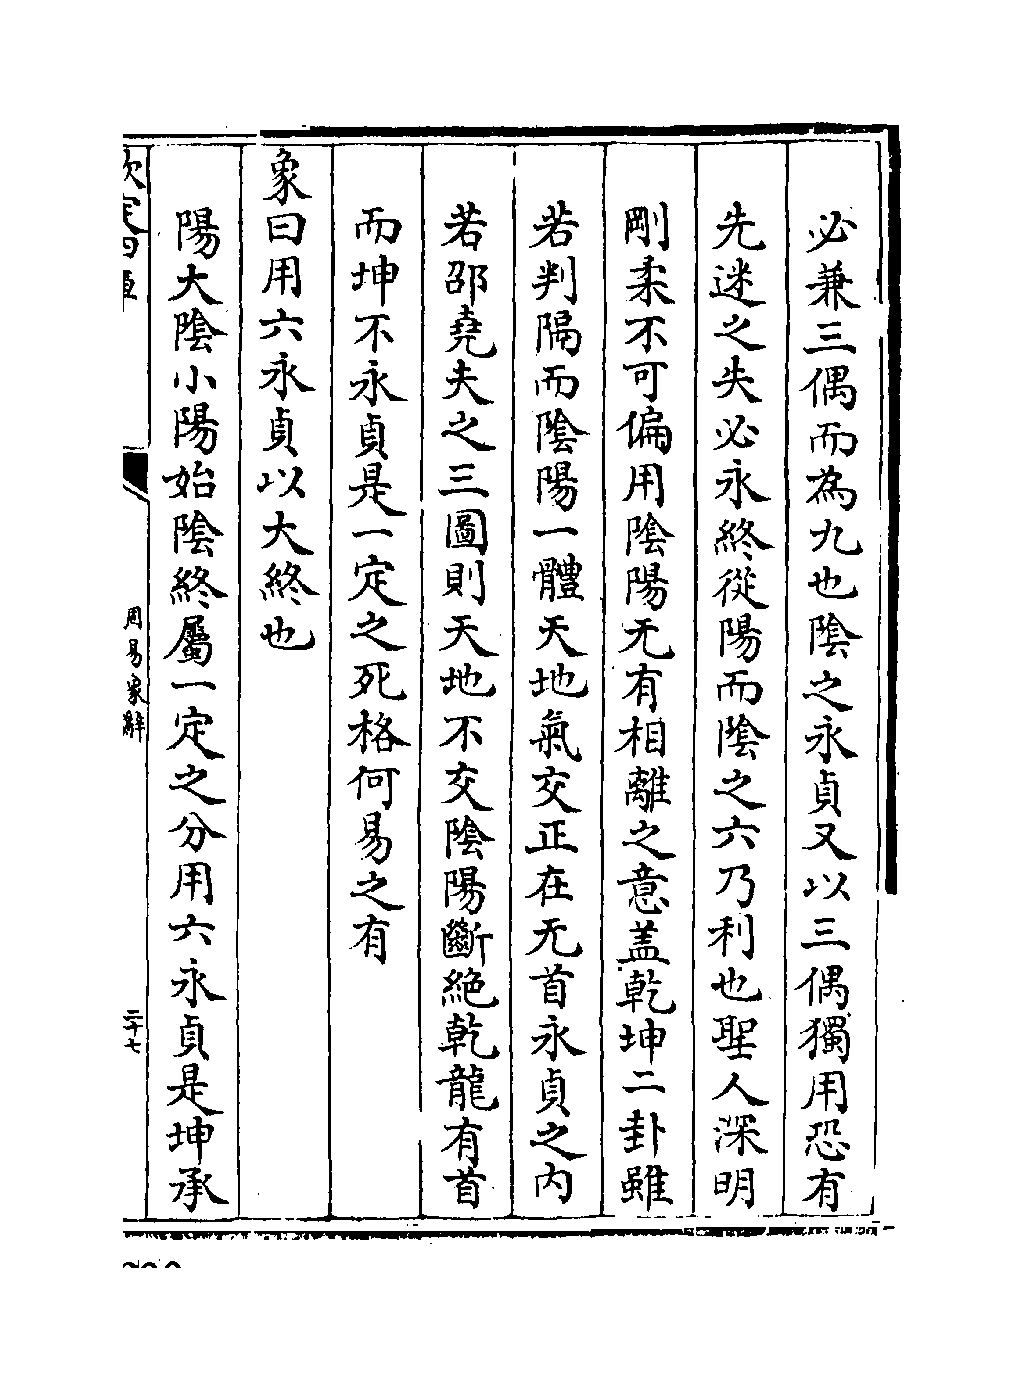 必兼三偶而為九也陰之永貞又以三偶獨用恐有
先迷之失必永終從陽而陰之六乃利也聖人深明
剛柔不可偏用陰陽无有相離之意盖乾坤二卦雖
若判隔而陰陽一體天地氣交正在无首永貞之內
若邵堯夫之三圖則天地不交陰陽斷絶乾龍有首
而坤不永貞是一定之死格何易之有
象曰用六永貞以大終也
陽大陰小陽始陰終屬一定之分用六永貞是坤承
欽定四庫
周易象辭
二十七